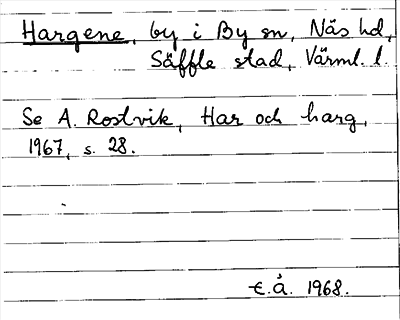 Hargene, by i By sn, Näs hd,
Säffle stad, Värml. l.
Se A. Rostvik, Har och harg,
1967, s. 28.
€.å. 1968.